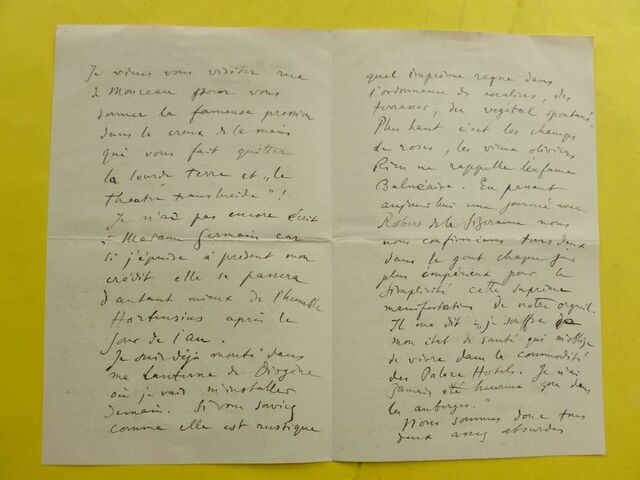 Je viens vous visiter rue
de Monceau pour vous
donner la fameuse pression
dans le creux de la main
qui vous fait quitter
la lourde terre et "le
theatre translucide"!
Je n'ai pas encore écrit
à Madame Germain car
si j'épuise à présent mon
crédit elle se passera
d'autant mieux de l'humble
Hortensius après le
jour de l'an.
Je suis déjà monté dans
ma Lanterne de Diogène
où je vais m'installer
demain. Si vous saviez
comme elle est rustique
quel imprévu regne dans
l'ordonnance des escaliers, des
terrasses, du végétal spontané.
Plus haut c'est les champs
de roses, les vieux oliviers
Rien ne rappelle l'infame
Balnéaire. En passant
aujourd'hui une journée avec
Robert de la Sizeranne nous
nous confirmions tous deux
dans le gout chaque jour
plus impérieux pour la
simplicité cette suprême
manifestation de notre orgueil.
Il me dit "je souffre de
mon état de santé qui m'oblige
de vivre dans la commodité
des Palace Hotels. Je n'ai
jamais été heureux que dans
les auberges."
Nous sommes donc tous
deux assez absurdes